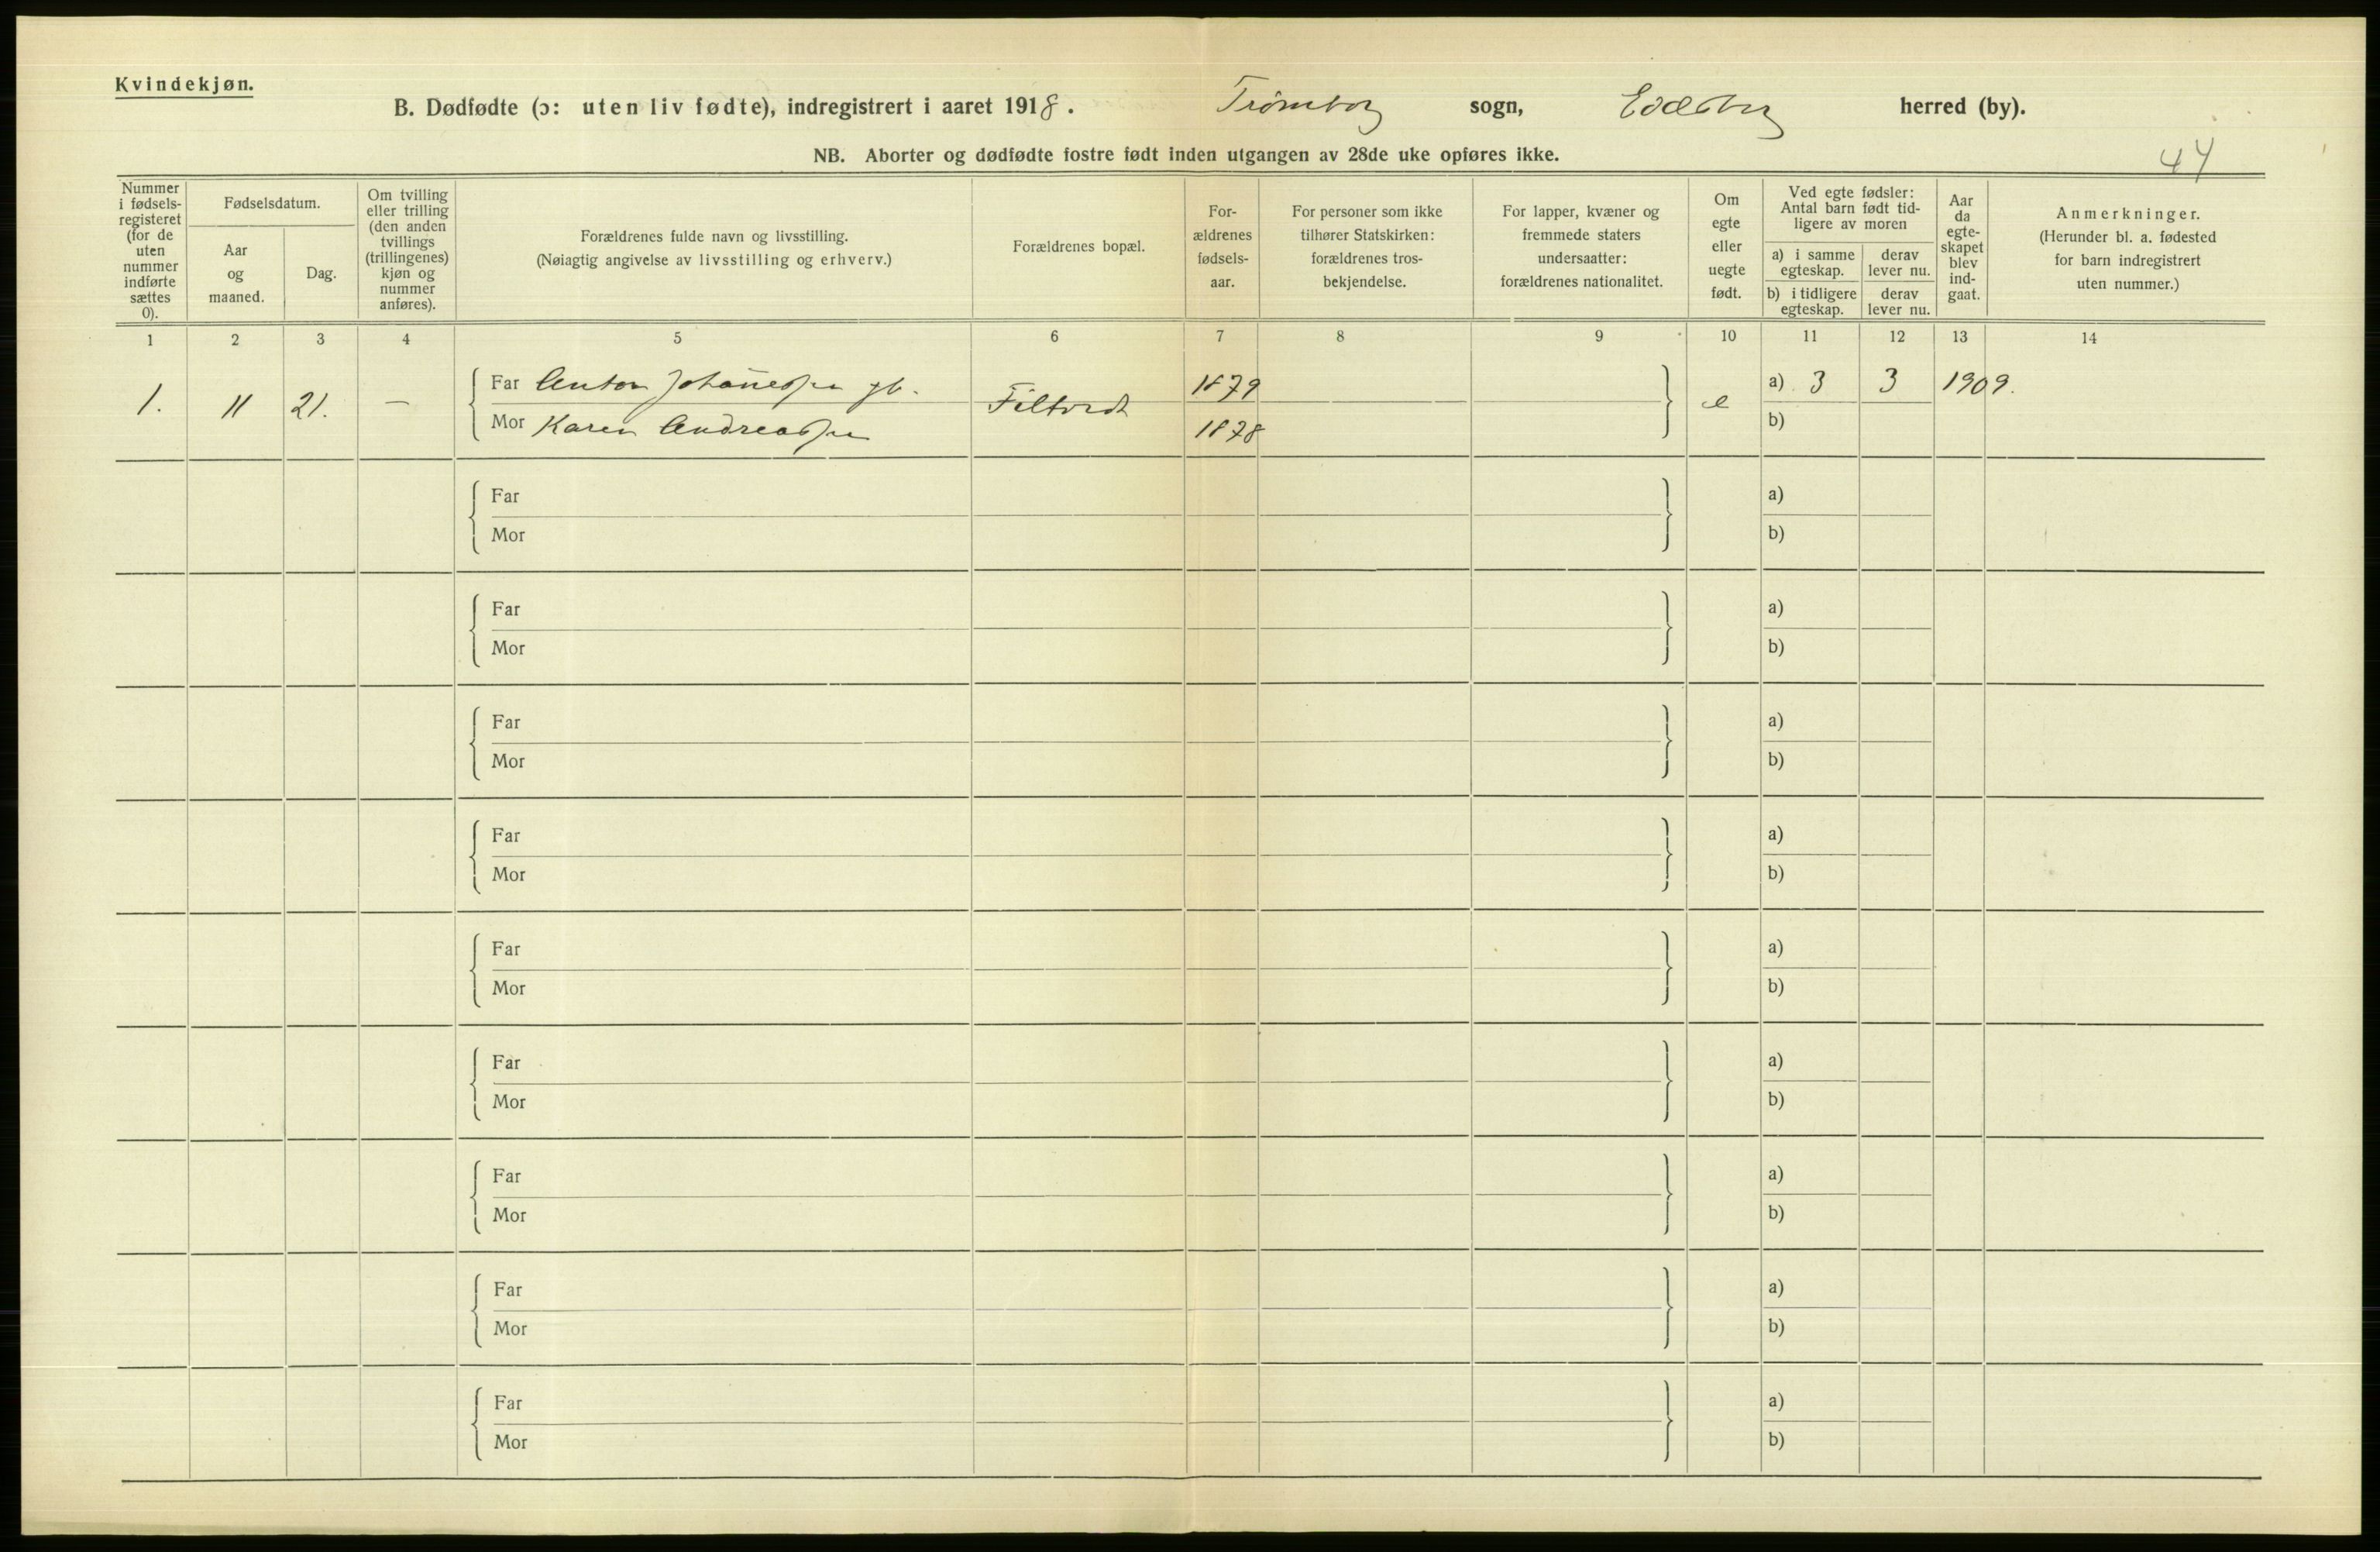 Kvindekjøn.
B. Dødfødte (ɔ: uten liv fødte), indregistrert i aaret 1918. Trømborg sogn, Eidsberg herred (by).
NB. Aborter og dødfødte fostre født inden utgangen av 28de uke opføres ikke.
44
Nummer i fødsels-registeret (for de uten nummer indførte sættes 0).
Fødselsdatum.
Aar og maaned.
Dag.
Om tvilling eller trilling (den anden tvillings (trillingenes) kjøn og nummer anføres).
Forældrenes fulde navn og livsstilling.
(Nøiagtig angivelse av livsstilling og erhverv.)
Forældrenes bopæl.
For-ældrenes fødsels-aar.
For personer som ikke tilhører Statskirken: forældrenes tros-bekjendelse.
For lapper, kvæner og fremmede staters undersaatter: forældrenes nationalitet.
Om egte eller uegte født.
Ved egte fødsler: Antal barn født tid-ligere av moren
a) i samme egteskap.
derav lever nu.
b) i tidligere egteskap.
derav lever nu.
Aar da egte-skapet blev ind-gaat.
Anmerkninger.
(Herunder bl. a. fødested for barn indregistrert uten nummer.)
1 2 3 4 5 6 7 8 9 10 11 12 13 14
1. 11 21. — Far Anton Johannessen gb. Filtvedt 1879 e a) 3 3 1909.
Mor Karen Andreassen 1878 b)
Far a)
Mor b)
Far a)
Mor b)
Far a)
Mor b)
Far a)
Mor b)
Far a)
Mor b)
Far a)
Mor b)
Far a)
Mor b)
Far a)
Mor b)
Far a)
Mor b)